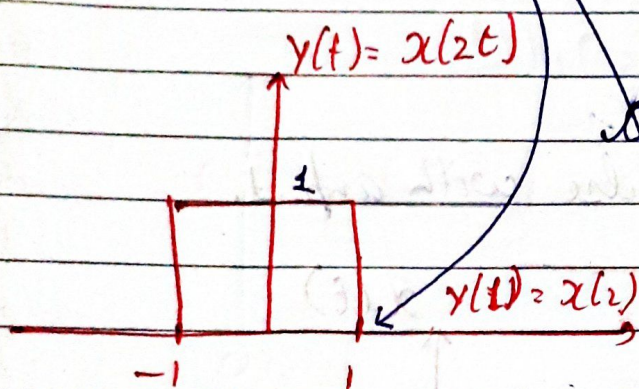 y(t) = x(2t)
1
y(1) = x(2)
-1
1